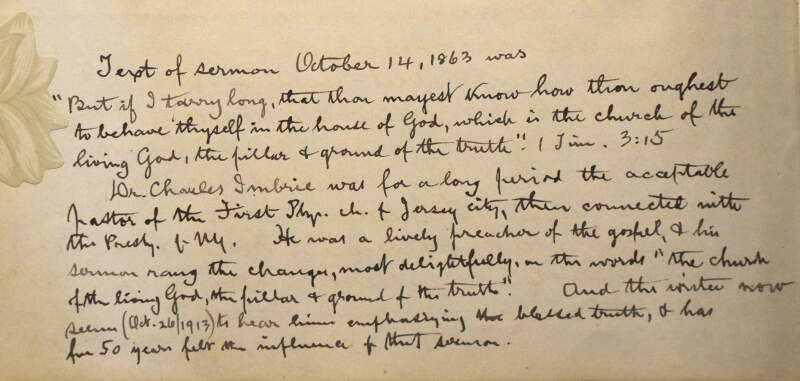 Text of sermon October 14, 1863 was
"But if I tarry long, that thou mayest know how thou oughest
to behave thyself in the house of God, which is the church of the
living God, the pillar & ground of the truth". 1 Tim. 3:15
Dr. Charles Imbrie was for a long period the acceptable
pastor of the First Pby. ch. of Jersey city, then connected with
the Presby. of NY. He was a lively preacher of the gospel, & his
sermon rang the changes, most delightfully, on the words "the church
of the living God, the pillar & ground of the truth". And the writer now
seems (Oct. 26/1913) to hear him emphasizing the blessed truth, & has
for 50 years felt the influence of that sermon.